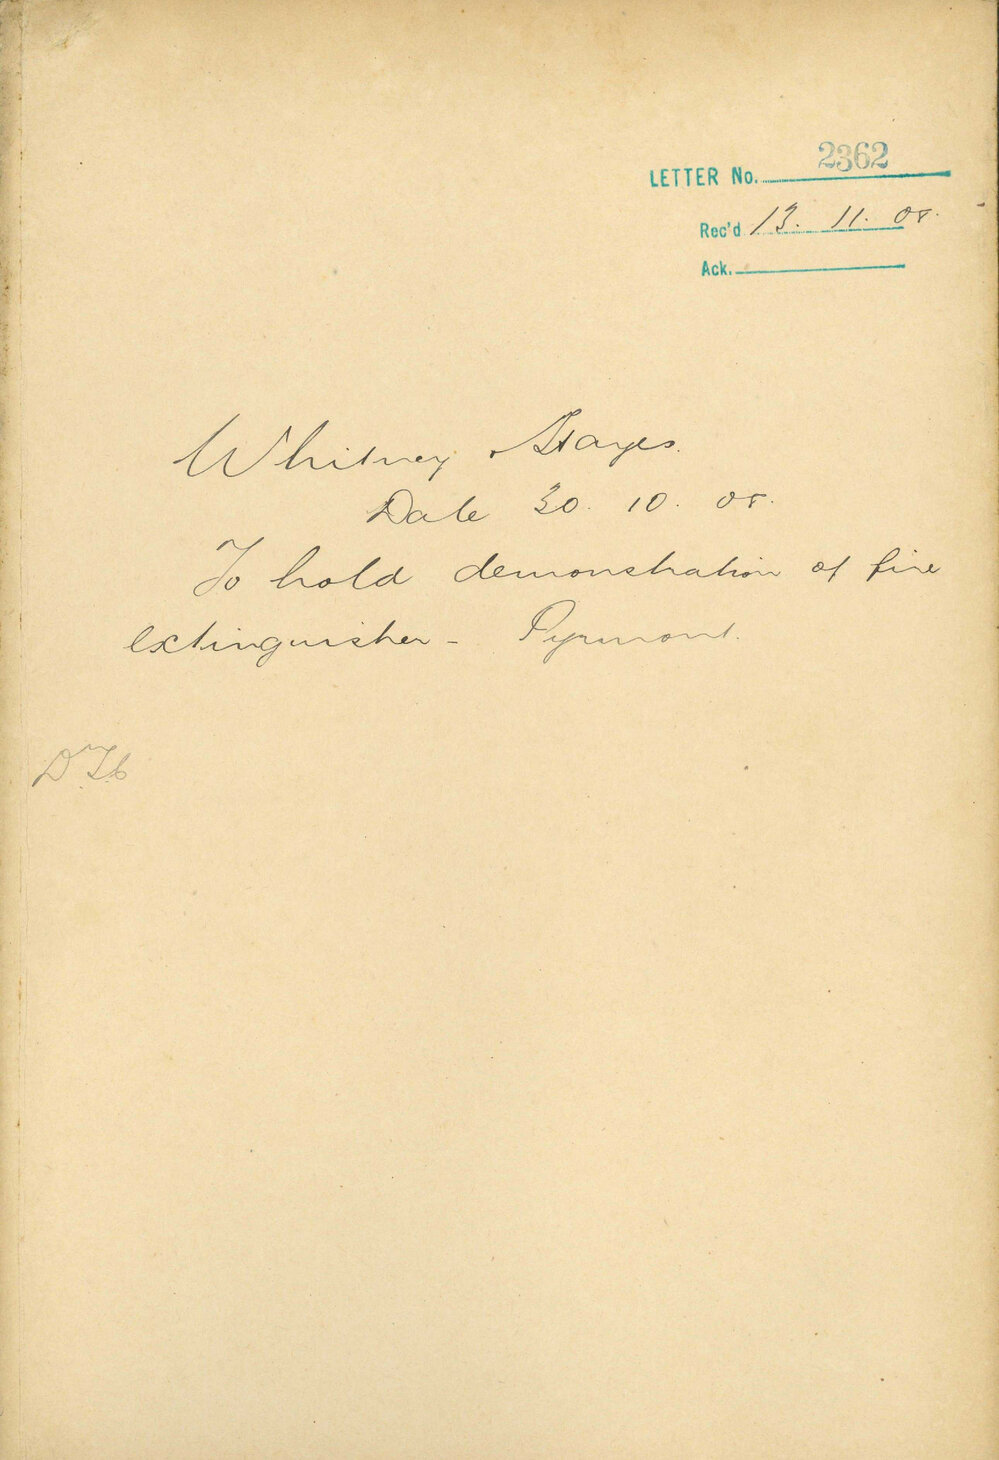 LETTER No. 2362
Rec'd 13. 11. 08.
Ack.
Whitney Hayes.
Date 30. 10. 08.
To hold demonstration of fire
extinguisher - Pyrmont.